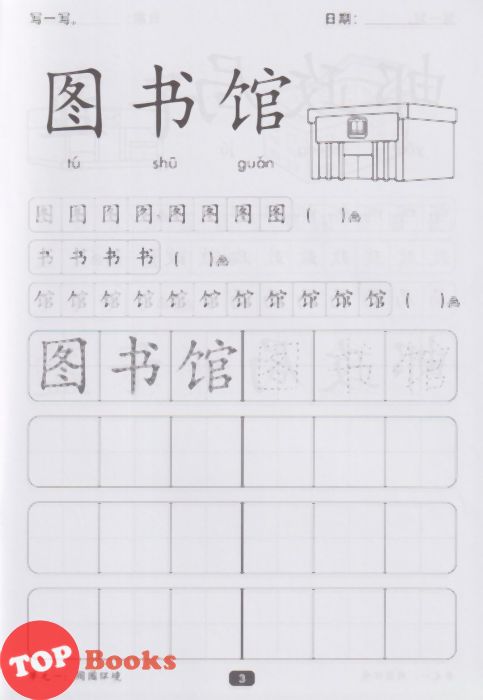 写一写。 日期：
图书馆
tú shū guǎn
图 图 图 图 图 图 图 图 ( )画
书 书 书 书 ( )画
馆 馆 馆 馆 馆 馆 馆 馆 馆 馆 馆 ( )画
图 书 馆
TOP Books
单元一：周围环境 3